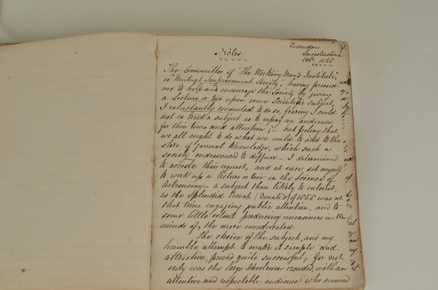 Quorndon
Leicestershire
1858
Notes
The Committee of "The Working Men's Institute,"
or Mutual Improvement Society, having pressed
me to help and encourage the Society by giving
a Lecture or two upon some Scientific subject,
I reluctantly consented to do so, fearing I could
not so treat a subject as to repay an audience
for their time and attention; but feeling that
we all ought to do what we could to add to the
store of general Knowledge, which such a
society endeavoured to diffuse. I determined
to accede their request, and at once set myself
to work up a lecture or two on the Science of
Astronomy - a subject then likely to interest,
as the Splendid Comet (Donati's) of 1858 was at
that time engaging public attention, and to
some little extent producing uneasiness in the
minds of the more uneducated.
The choice of the subject, and my
humble attempt to make it simple and
attractive, proved quite successful, for not
only was the large Schoolroom crowded, with an
attentive and respectable audience who seemed